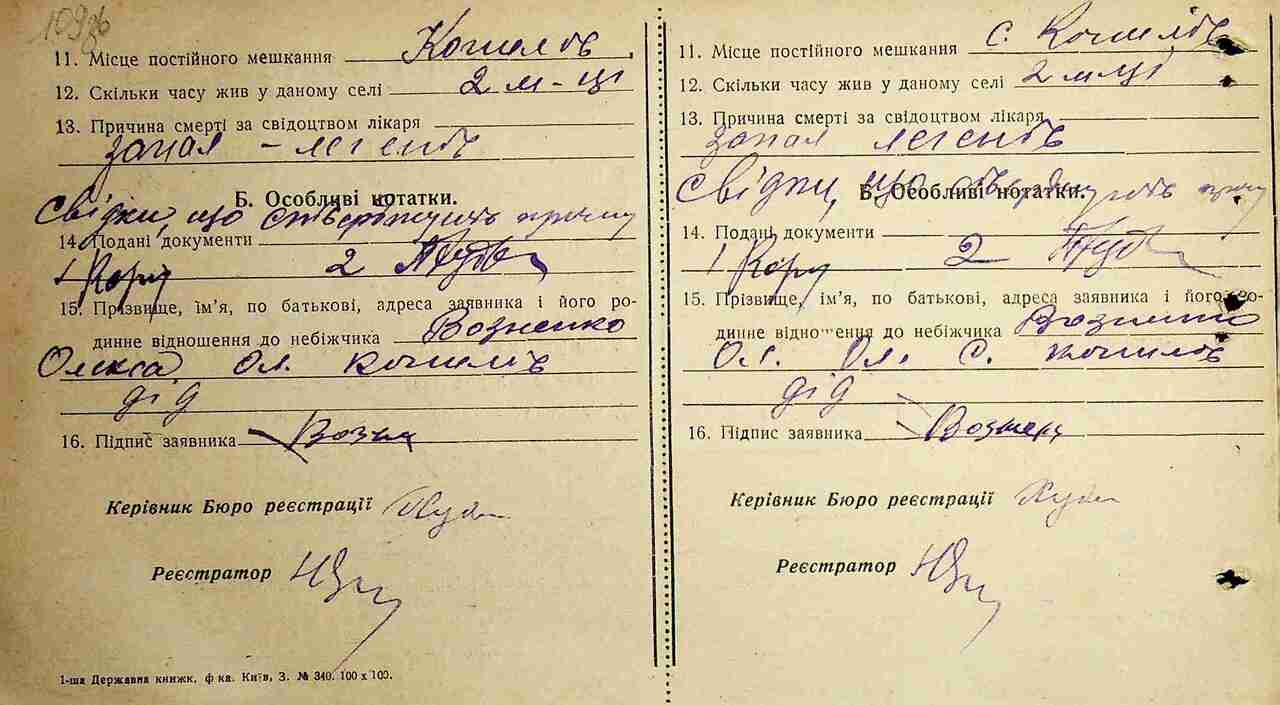 109зв
11. Місце постійного мешкання Кошилів
12. Скільки часу жив у даному селі 2 м-ці
13. Причина смерті за свідоцтвом лікаря
запал - легенів
Б. Особливі нотатки.
Свідки, що стверджують причину
14. Подані документи
1 2
15. Прізвище, ім'я, по батькові, адреса заявника і його ро-
динне відношення до небіжчика Возненко
Олекса Ол. Кошилів
дід
16. Підпис заявника Возн
Керівник Бюро реєстрації Худ
Реєстратор
1-ша Державна книжк. ф-ка. Київ, З. № 340. 100 х 100.
11. Місце постійного мешкання с. Кошилів
12. Скільки часу жив у даному селі 2 м-ці
13. Причина смерті за свідоцтвом лікаря
запал легенів
Б. Особливі нотатки.
Свідки, що стверджують
14. Подані документи
1 2
15. Прізвище, ім'я, по батькові, адреса заявника і його ро-
динне відношення до небіжчика Возненко
Ол. Ол. С. Кошилів
дід
16. Підпис заявника Вознен
Керівник Бюро реєстрації Худ
Реєстратор